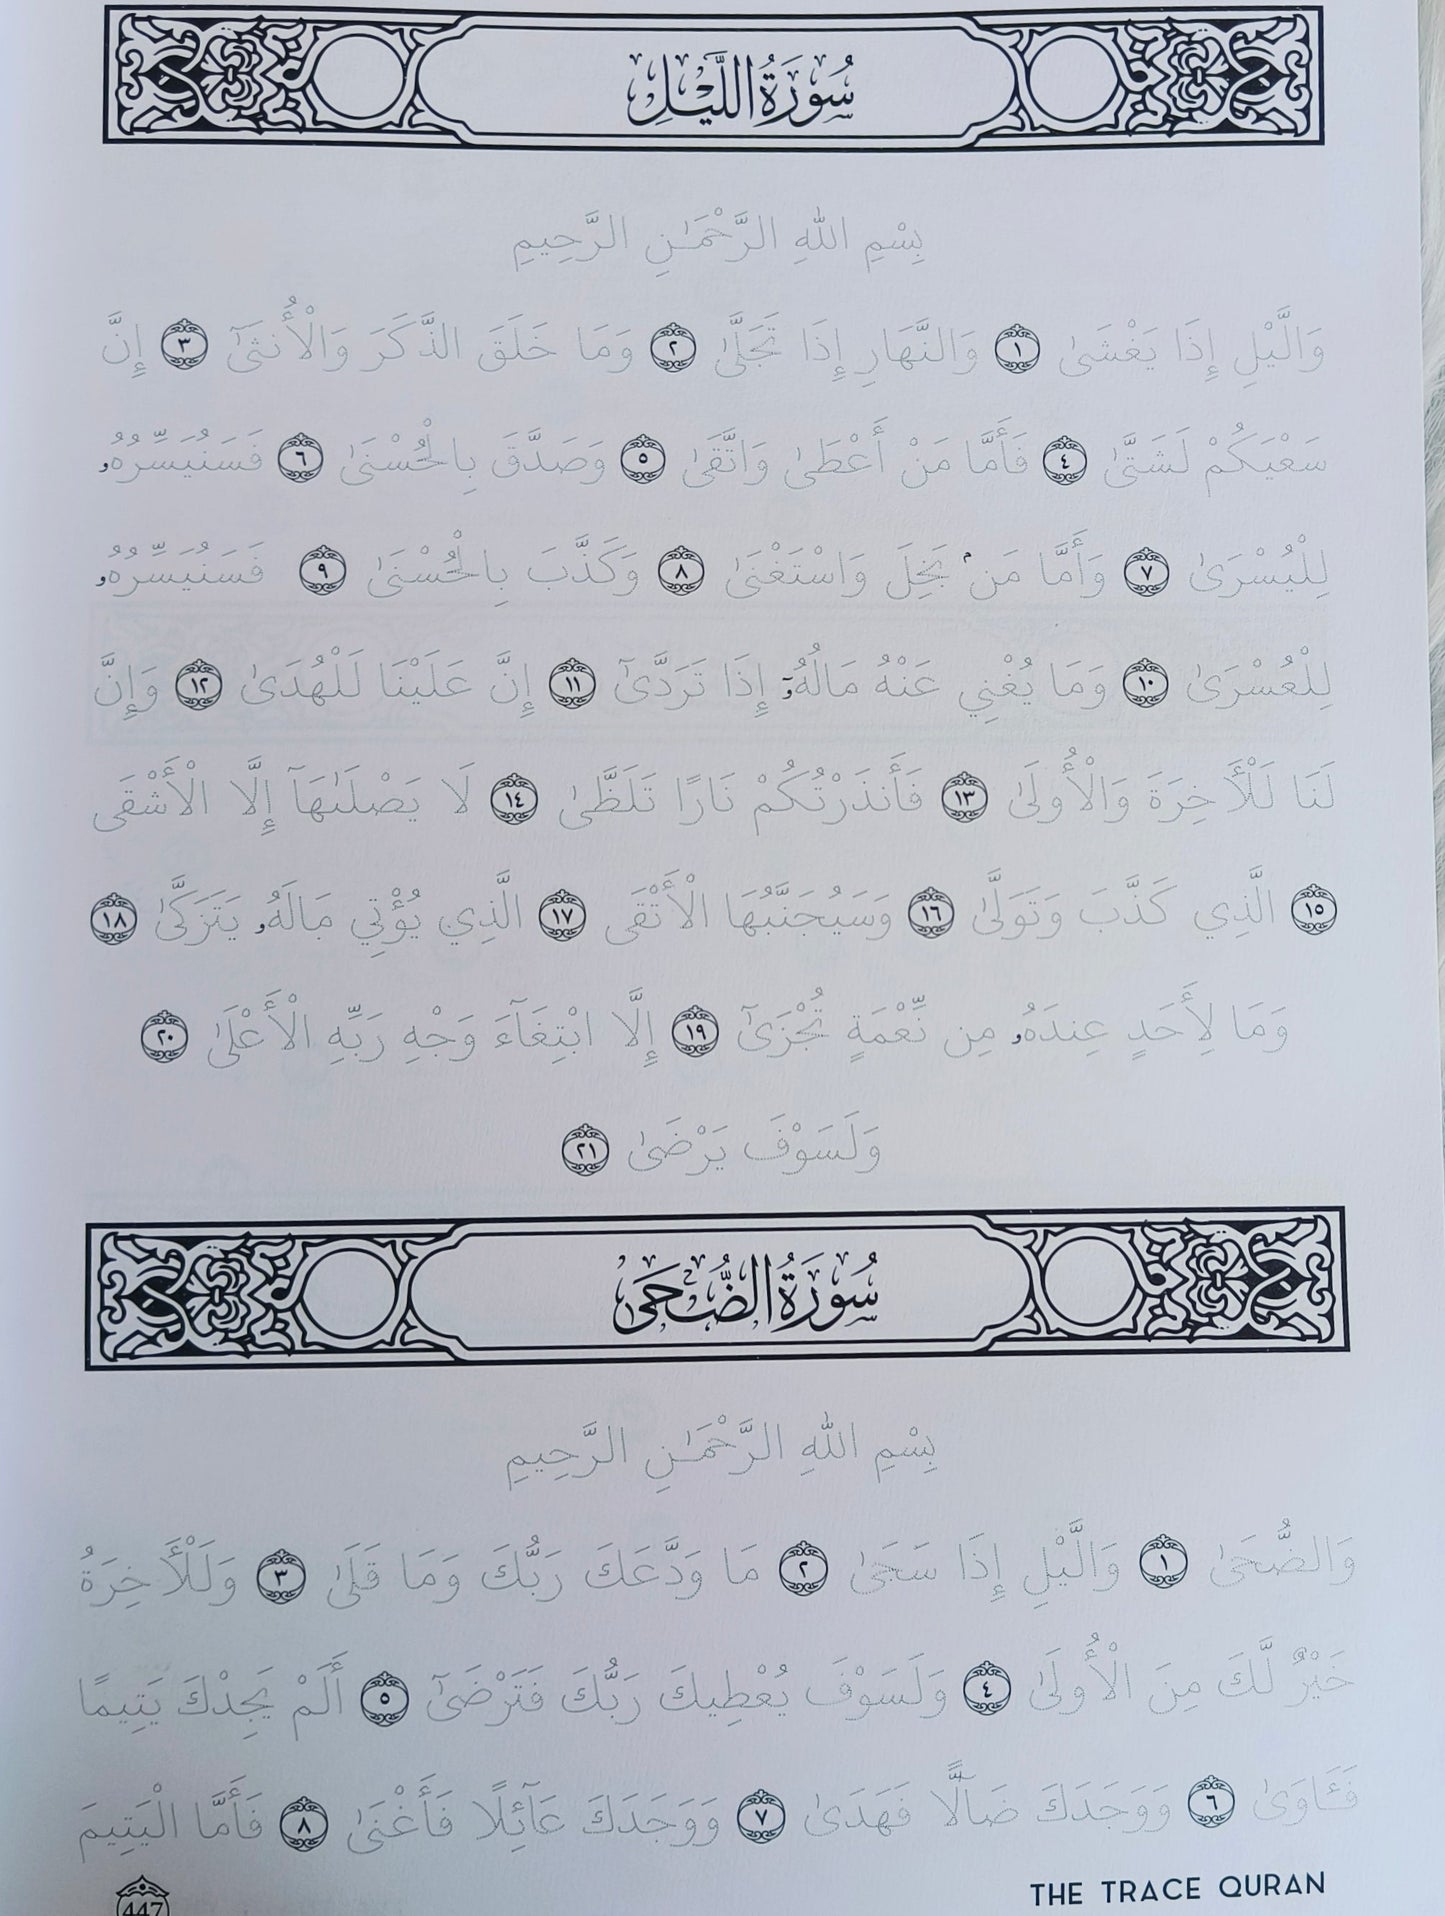 سُورَةُ اللَّيْلِ
بِسْمِ اللَّهِ الرَّحْمَٰنِ الرَّحِيمِ
وَالَّيْلِ إِذَا يَغْشَىٰ ١ وَالنَّهَارِ إِذَا تَجَلَّىٰ ٢ وَمَا خَلَقَ الذَّكَرَ وَالْأُنثَىٰٓ ٣ إِنَّ
سَعْيَكُمْ لَشَتَّىٰ ٤ فَأَمَّا مَنْ أَعْطَىٰ وَاتَّقَىٰ ٥ وَصَدَّقَ بِالْحُسْنَىٰ ٦ فَسَنُيَسِّرُهُۥ
لِلْيُسْرَىٰ ٧ وَأَمَّا مَنۢ بَخِلَ وَاسْتَغْنَىٰ ٨ وَكَذَّبَ بِالْحُسْنَىٰ ٩ فَسَنُيَسِّرُهُۥ
لِلْعُسْرَىٰ ١٠ وَمَا يُغْنِي عَنْهُ مَالُهُۥٓ إِذَا تَرَدَّىٰٓ ١١ إِنَّ عَلَيْنَا لَلْهُدَىٰ ١٢ وَإِنَّ
لَنَا لَلْأَخِرَةَ وَالْأُولَىٰ ١٣ فَأَنذَرْتُكُمْ نَارًا تَلَظَّىٰ ١٤ لَا يَصْلَىٰهَآ إِلَّا الْأَشْقَى
١٥ الَّذِي كَذَّبَ وَتَوَلَّىٰ ١٦ وَسَيُجَنَّبُهَا الْأَتْقَى ١٧ الَّذِي يُؤْتِي مَالَهُۥ يَتَزَكَّىٰ ١٨
وَمَا لِأَحَدٍ عِندَهُۥ مِن نِّعْمَةٍ تُجْزَىٰٓ ١٩ إِلَّا ابْتِغَآءَ وَجْهِ رَبِّهِ الْأَعْلَىٰ ٢٠
وَلَسَوْفَ يَرْضَىٰ ٢١
سُورَةُ الضُّحَىٰ
بِسْمِ اللَّهِ الرَّحْمَٰنِ الرَّحِيمِ
وَالضُّحَىٰ ١ وَالَّيْلِ إِذَا سَجَىٰ ٢ مَا وَدَّعَكَ رَبُّكَ وَمَا قَلَىٰ ٣ وَلَلْأَخِرَةُ
خَيْرٌ لَّكَ مِنَ الْأُولَىٰ ٤ وَلَسَوْفَ يُعْطِيكَ رَبُّكَ فَتَرْضَىٰٓ ٥ أَلَمْ يَجِدْكَ يَتِيمًا
فَـَٔاوَىٰ ٦ وَوَجَدَكَ ضَآلًّا فَهَدَىٰ ٧ وَوَجَدَكَ عَآئِلًا فَأَغْنَىٰ ٨ فَأَمَّا الْيَتِيمَ
447
THE TRACE QURAN